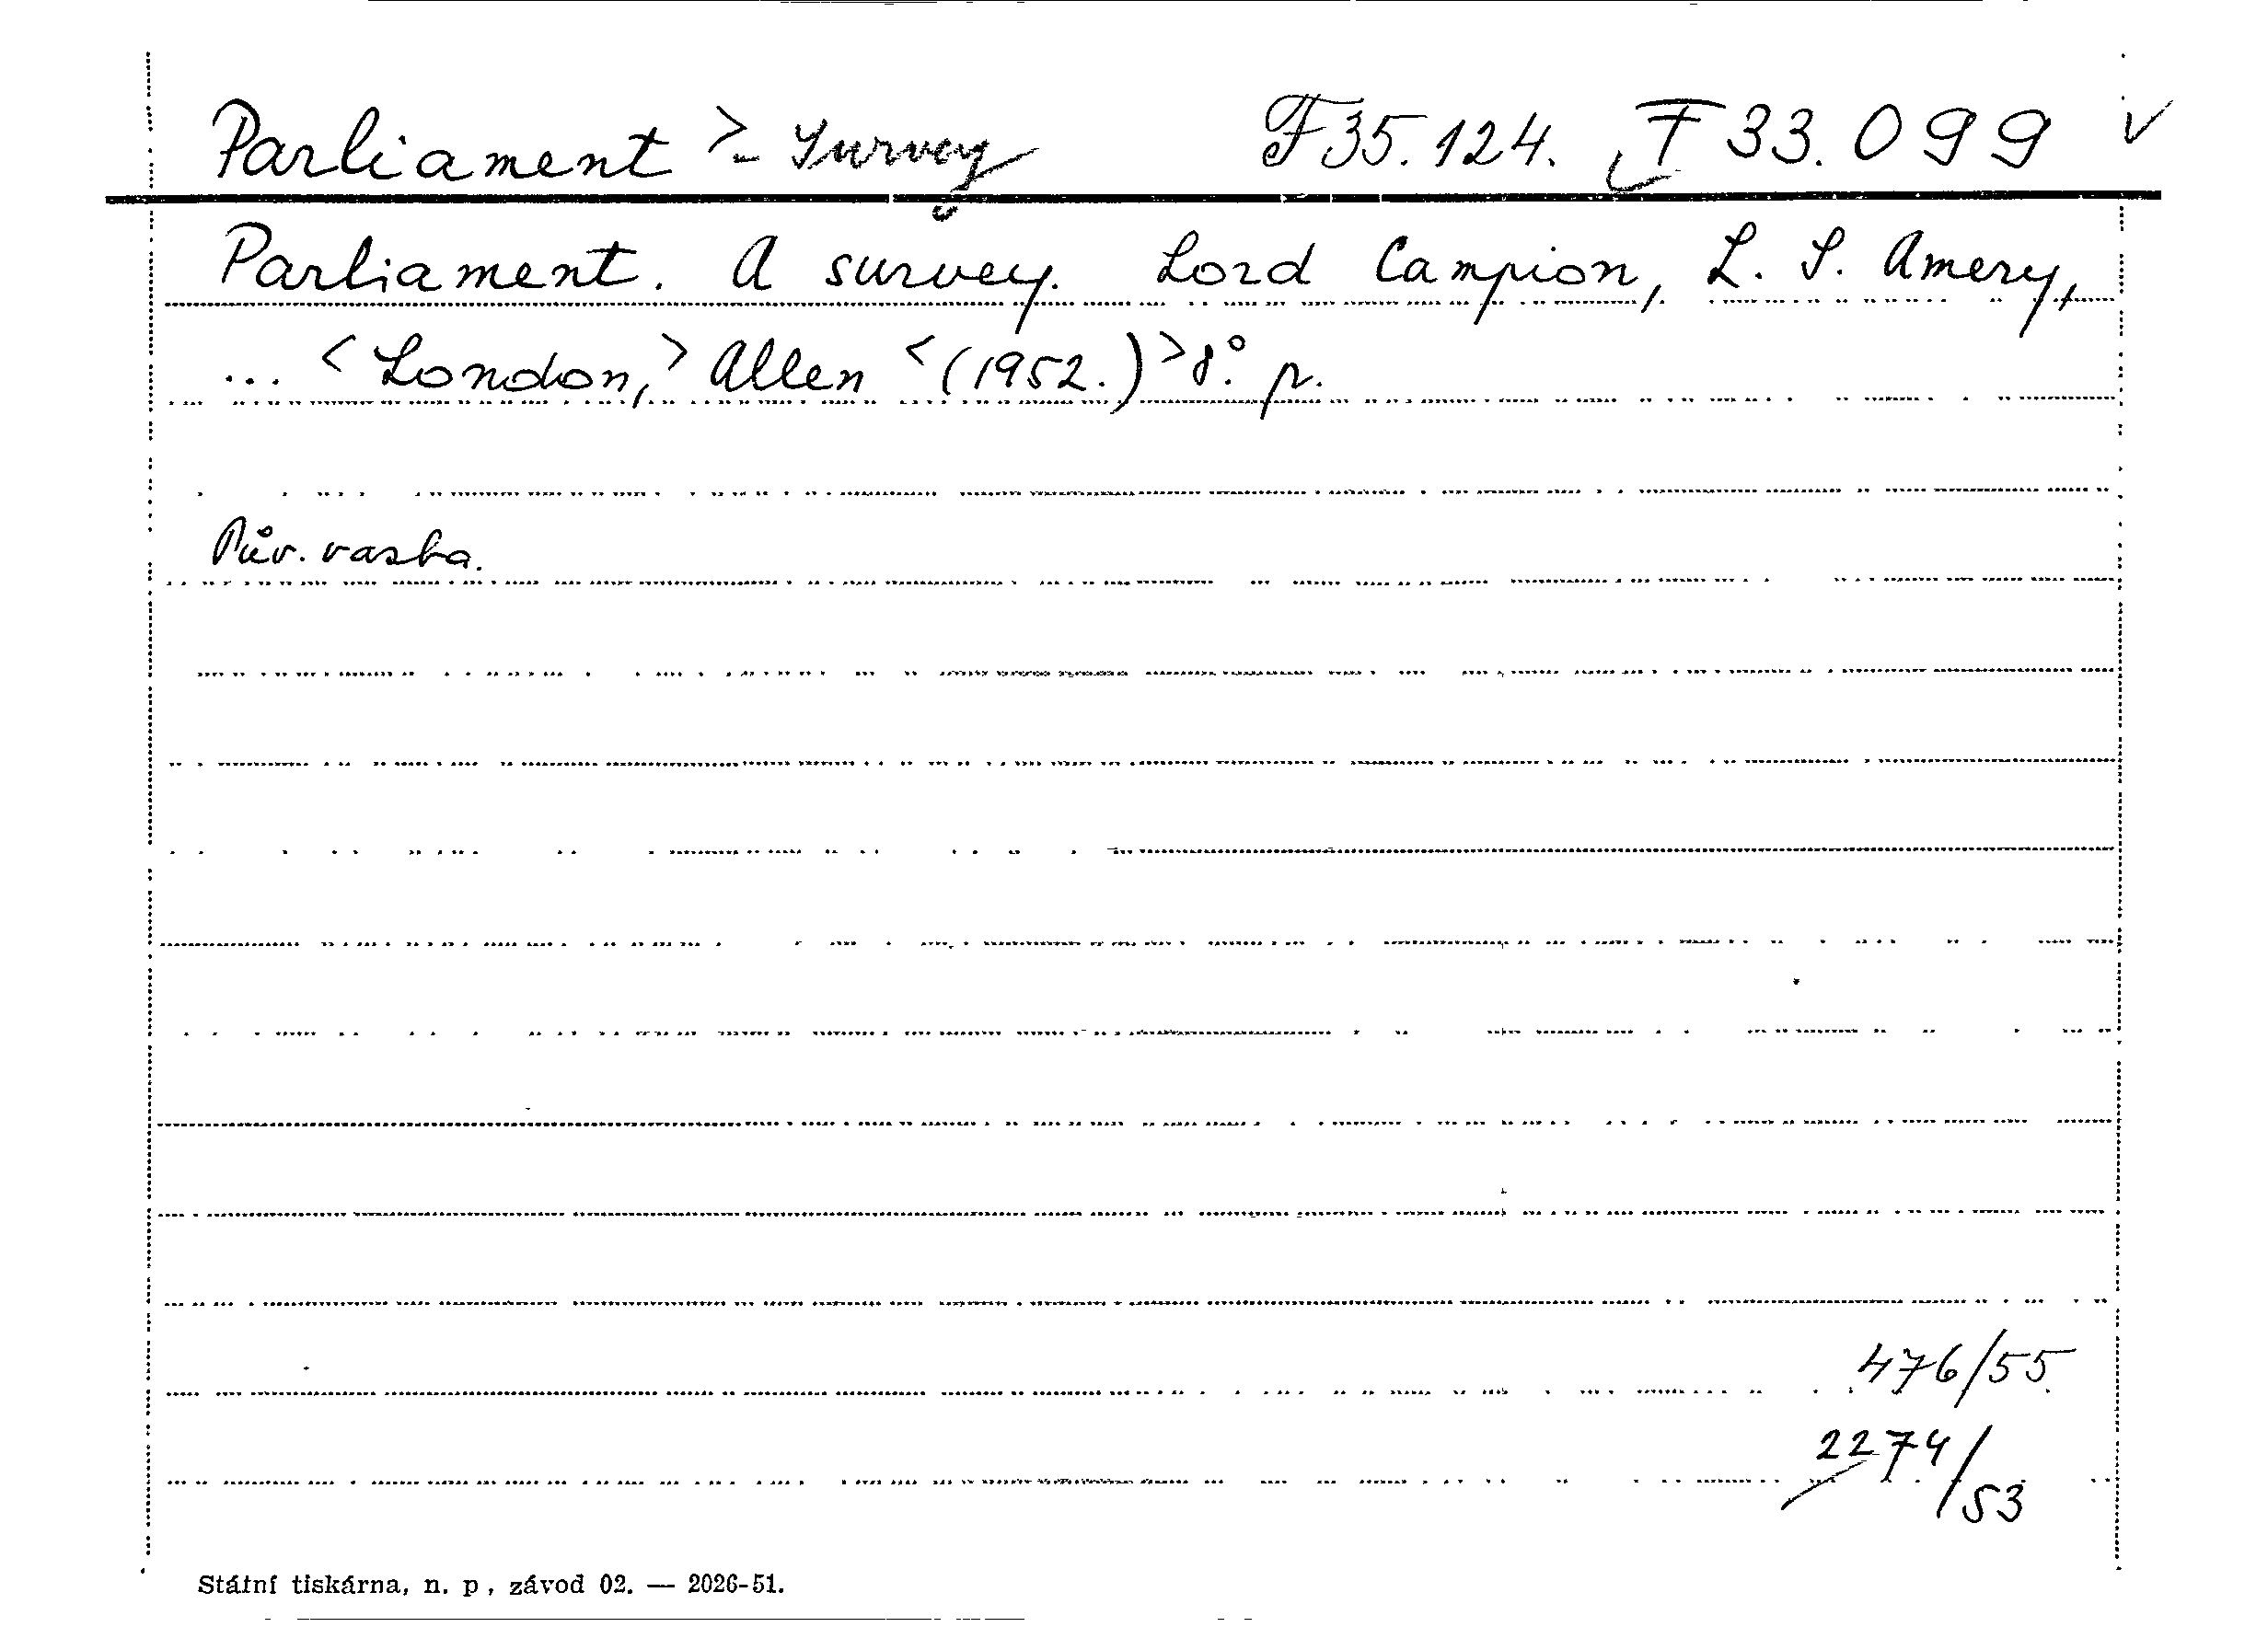 Parliament >- Survey F 35.124. F 33.099 v
Parliament. A survey. Lord Campion, L. S. Amery,
... <London,> Allen <(1952.)> 8°. p.
Pův. vazba.
476/55
2274/53
Státní tiskárna, n. p., závod 02. — 2026-51.